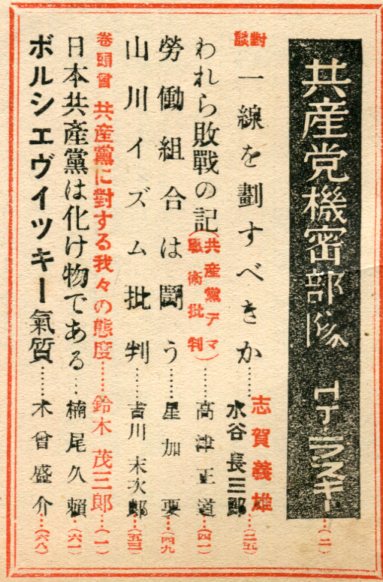 共産党機密部隊 H・J・ラスキ……(二)
對談 一線を劃すべきか……志賀義雄 水谷長三郎……(二五)
われら敗戰の記(共産黨デマ戰術批判)……高津正道……(四一)
勞働組合は鬪う……星加要……(四九)
山川イズム批判……吉川末次郎……(五三)
卷頭言 共産黨に對する我々の態度……鈴木茂三郎……(一)
日本共産黨は化け物である……楠尾久頼……(六一)
ボルシエヴイツキー氣質……木曾盛介……(六八)